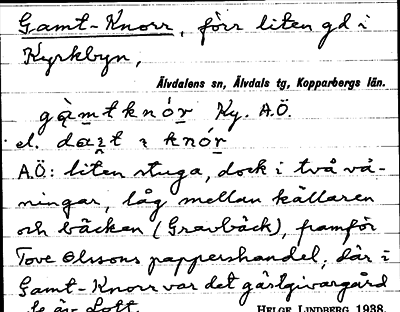 Gamt-Knorr, förr liten gd i
Kyrkbyn,
Älvdalens sn, Älvdals tg, Kopparbergs län.
gàmtknór Ky. A.Ö.
el. da t knór
A.Ö: liten stuga, dock i två vå-
ningar, låg mellan källaren
och bäcken (Gravbäck), framför
Tove Olssons pappershandel; där i
Gamt-Knorr var det gästgivargård
HELGE LINDBERG 1938.